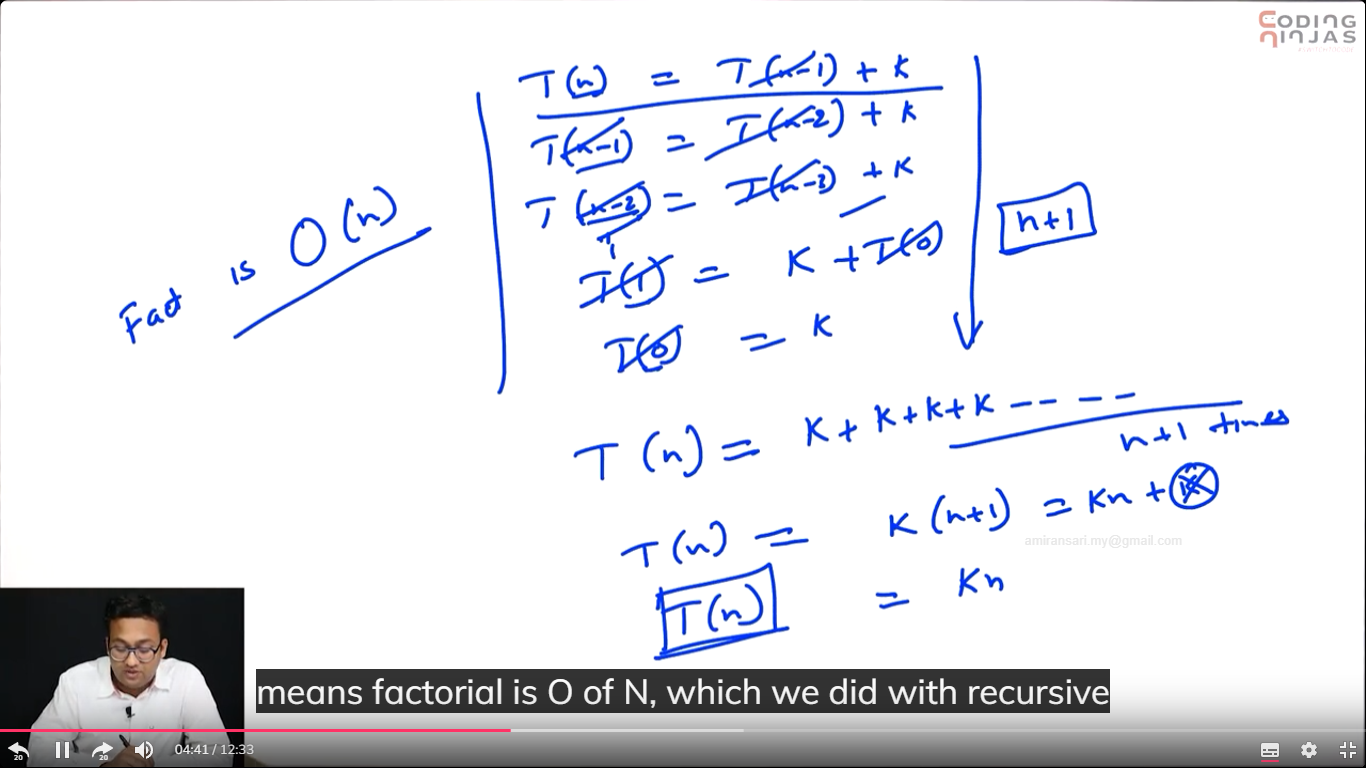 CODING
NINJAS
T(n) = T(n-1) + k
T(n-1) = T(n-2) + k
T(n-2) = T(n-3) + k
T(1) = k + T(0)
T(0) = k
n+1
Fact is O(n)
T(n) = k + k + k + k -- -- --
n+1 times
T(n) = k(n+1) = kn + k
amiransari.my@gmail.com
T(n) = kn
means factorial is O of N, which we did with recursive
20
20
04:41 / 12:33